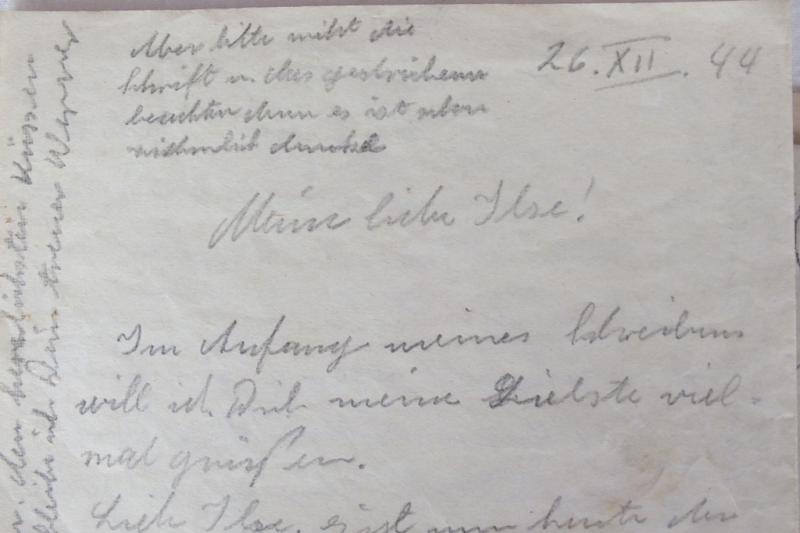 Aber bitte nicht die
Schrift u. das geschriebene
beachten denn es ist schon
ziemlich dunkel
26. XII. 44
Meine liebe Ilse!
Im Anfang meines Schreibens
will ich Dich meine Liebste viel-
mal grüßen.
Lieb Ilse, es ist nun heute der
den herzlichsten Küssen
bleibt ich Dein treuer Werner